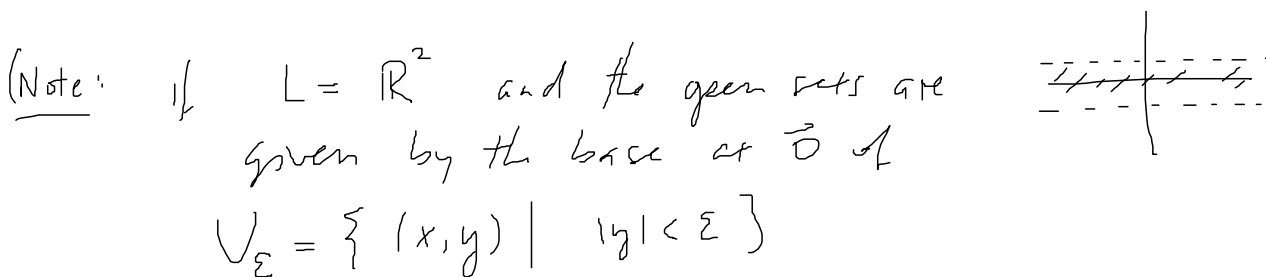 (Note: if L = ℝ² and the open sets are
given by the base at 0⃗ of
U_ε = { (x,y) | |y| < ε }